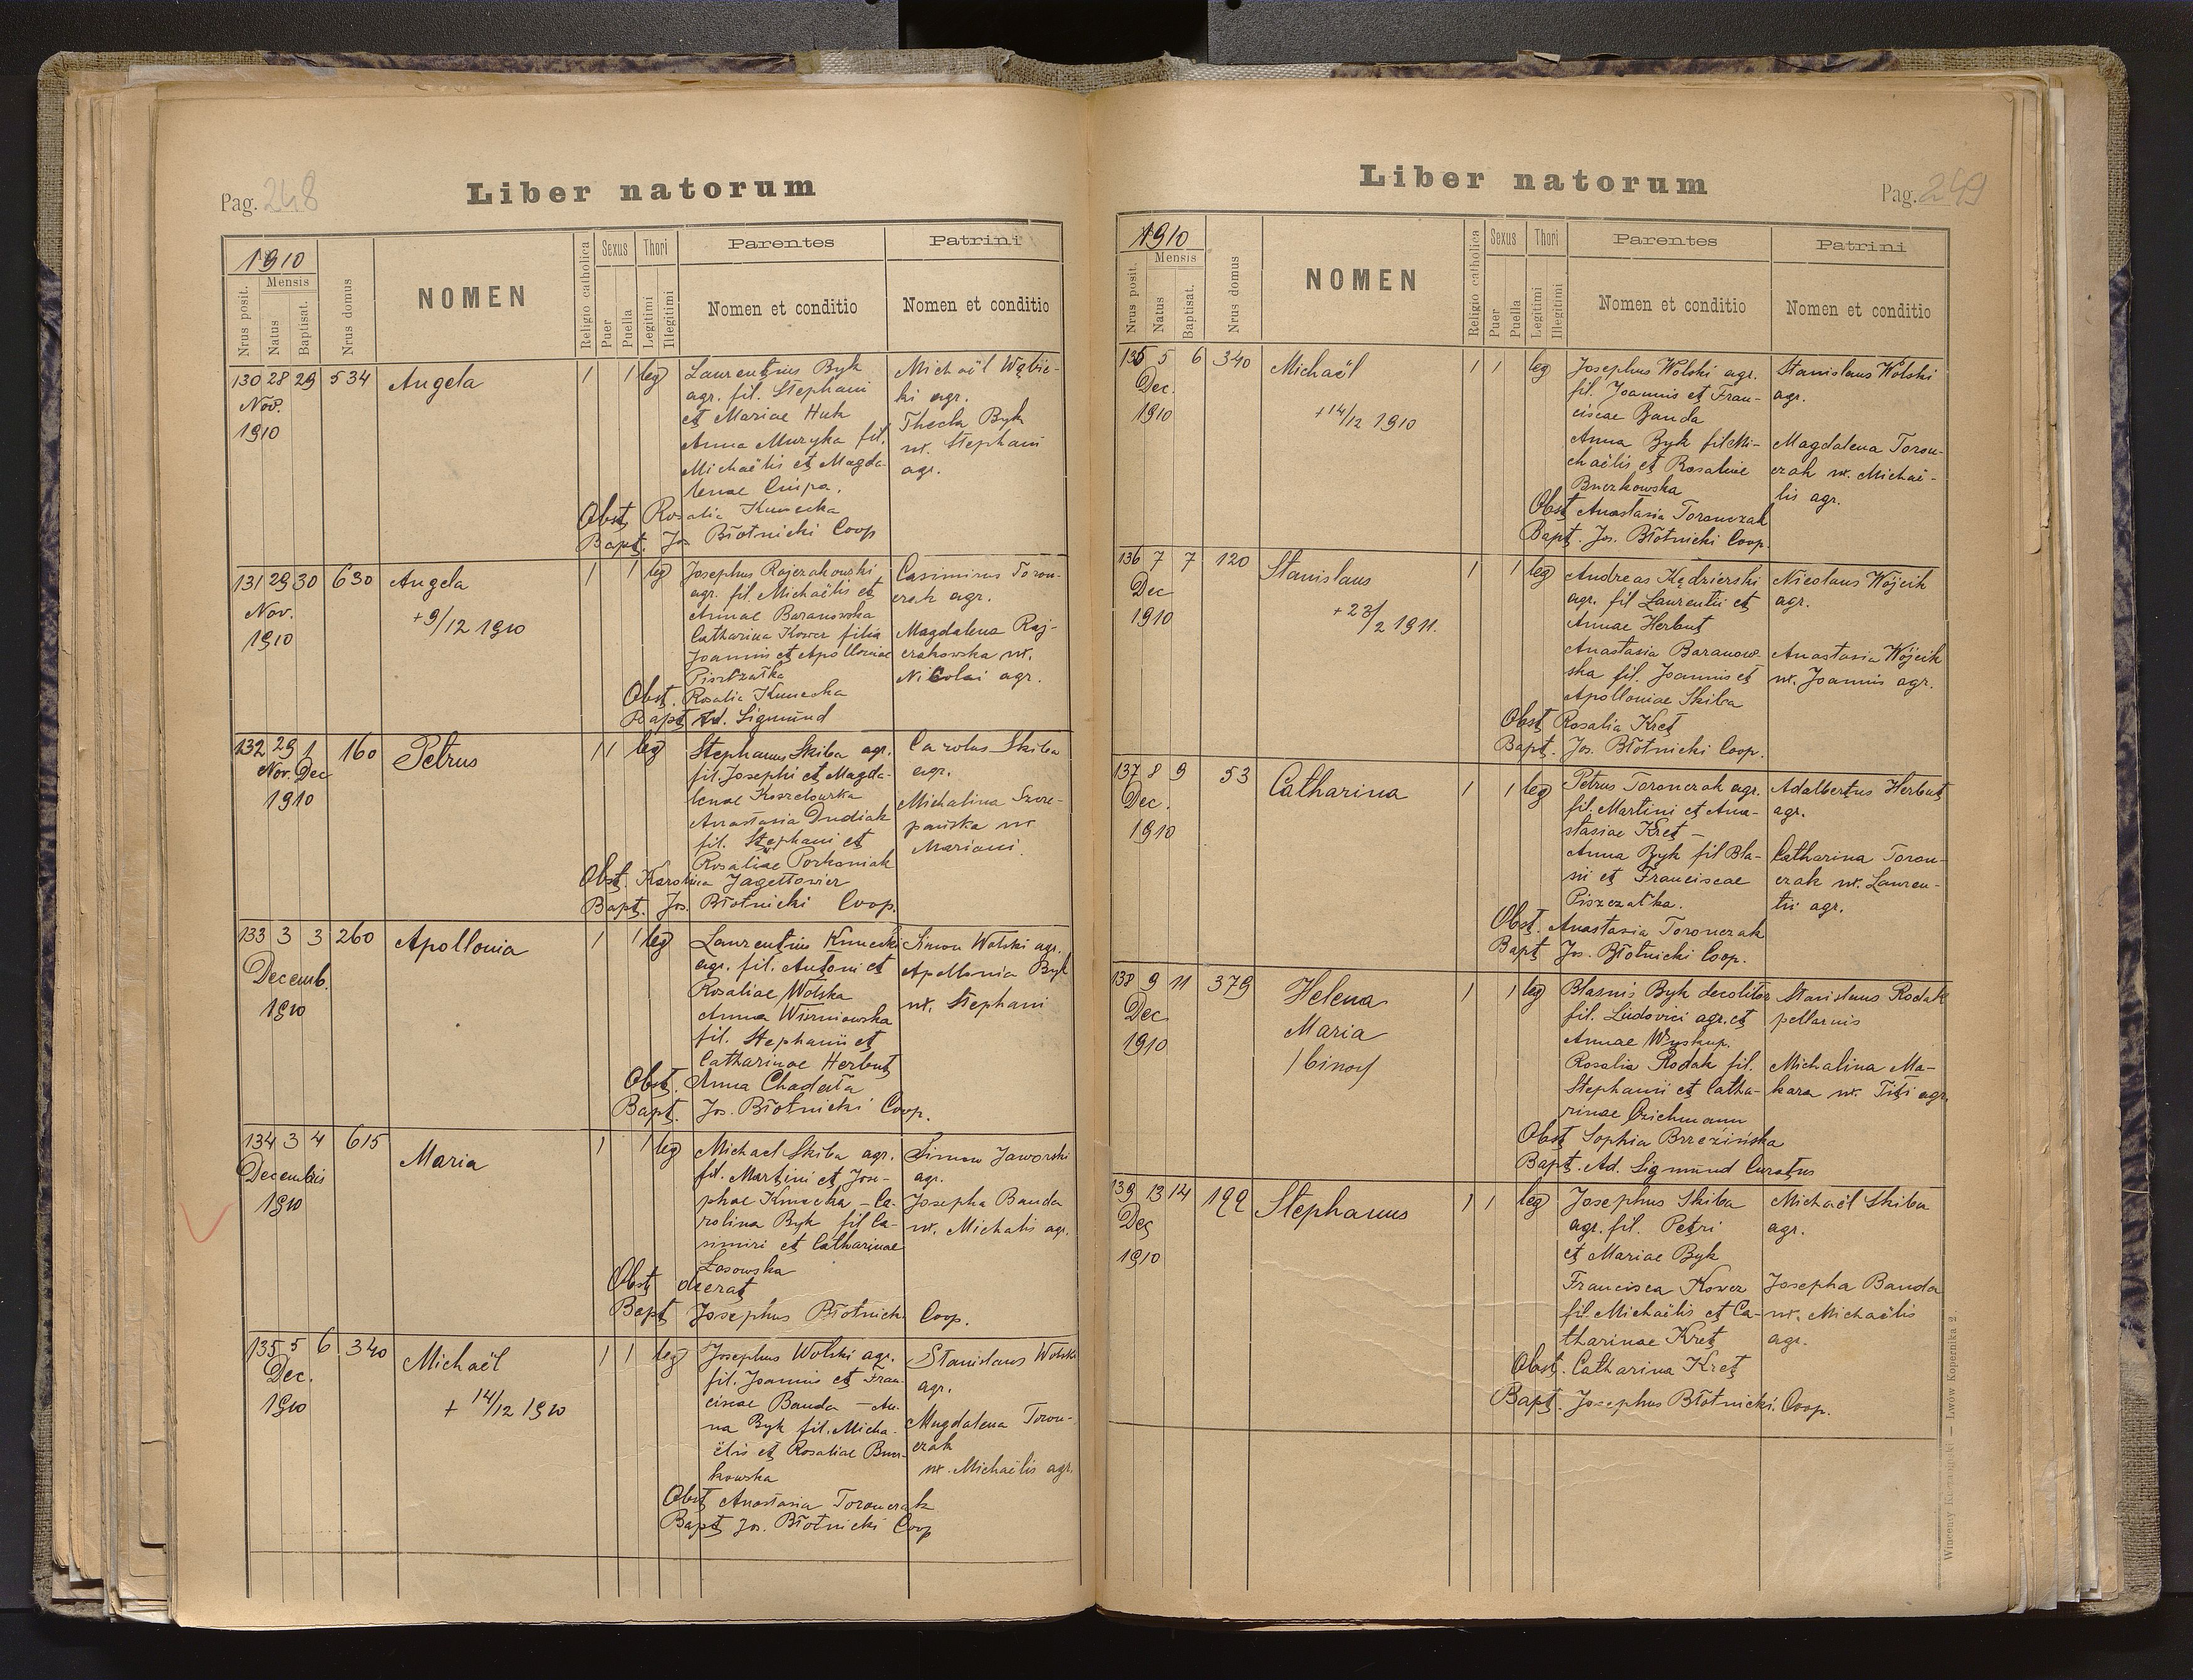 Pag. 248
Liber natorum
1910
Mensis
Nrus posit.
Natus
Baptisat.
Nrus domus
NOMEN
Religio catholica
Sexus
Puer
Puella
Thori
Legitimi
Illegitimi
Parentes
Nomen et conditio
Patrini
Nomen et conditio
130 28 29 534 Angela 1 1 leg
Nov.
1910
Laurentius Byk
agr. fil. Stephani
et Mariae Huk
Anna Muzyka fil.
Michaëlis et Magda-
lenae Ciupa.
Michaël Wąbic-
ki agr.
Thecla Byk
ux. Stephani
agr.
Obst. Rosalia Kunecka
Bapt. Jos Błotnicki Coop
131 29 30 630 Angela 1 1 leg
Nov.
1910
+9/12 1910
Josephus Rajczakowski
agr. fil. Michaëlis et
Annae Baranowska
Catharina Kower filia
Joannis et Apolloniae
Piszczatka
Casimirus Toron-
czak agr.
Magdalena Raj-
czakowska ux.
Nicolai agr.
Obst. Rosalia Kunecka
Bapt. Ad. Sigmund
132 29 1 160 Petrus 1 1 leg
Nov. Dec
1910
Stephanus Skiba agr.
fil. Josephi et Magda-
lenae Koszelowska
Anastasia Dudiak
fil. Stephani et
Rosaliae Porhoniak
Carolus Skiba
agr.
Michalina Szcze-
pańska ux
Mariani.
Obst. Karolina Jagełłowicz
Bapt. Jos. Błotnicki Coop.
133 3 3 260 Apollonia 1 1 leg
Decemb.
1910
Laurentius Kunecki
agr. fil. Antoni et
Rosaliae Wolska
Anna Wiśniowska
fil. Stephanii et
Catharinae Herbut
Simon Wolski agr.
Apollonia Byk
ux. Stephani
Obst. Anna Chadała
Bapt. Jos. Błotnicki Coop.
134 3 4 615 Maria 1 1 leg
Decembris
1910
Michael Skiba agr.
fil. Martini et Jose-
phae Kunecka - Ca-
rolina Byk fil Ca-
simiri et Catharinae
Łosowska
Simon Jaworski
agr.
Josepha Banda
ux. Michalis agr.
Obst deerat
Bapt Josephus Błotnicki Coop.
135 5 6 340 Michaël 1 1 leg
Dec.
1910
+ 14/12 1910
Josephus Wolski agr.
fil. Joannis et Fran-
ciscae Banda - An-
na Byk fil. Micha-
ëlis et Rosaliae Bucz-
kowska
Stanislaus Wolski
agr.
Magdalena Toron-
czak
ux. Michaëlis agr.
Obst Anastasia Toronczak
Bapt Jos. Błotnicki Coop
Liber natorum
Pag. 249
1910
Mensis
Nrus posit.
Natus
Baptisat.
Nrus domus
NOMEN
Religio catholica
Sexus
Puer
Puella
Thori
Legitimi
Illegitimi
Parentes
Nomen et conditio
Patrini
Nomen et conditio
135 5 6 340 Michaël 1 1 leg
Dec.
1910
+14/12 1910
Josephus Wolski agr.
fil. Joannis et Fran-
ciscae Banda
Anna Byk fil Mi-
chaëlis et Rosaliae
Buczkowska
Stanislaus Wolski
agr.
Magdalena Toron-
czak ux. Michaë-
lis agr.
Obst Anastasia Toronczak
Bapt. Jos. Błotnicki Coop.
136 7 7 120 Stanislaus 1 1 leg
Dec
1910
+23/2 1911.
Andreas Kędzierski
agr. fil Laurentii et
Annae Herbut
Anastasia Baranow-
ska fil. Joannis et
Apolloniae Skiba
Nicolaus Wójcik
agr.
Anastasia Wójcik
ux. Joannis agr.
Obst Rosalia Kret
Bapt. Jos. Błotnicki Coop.
137 8 9 53 Catharina 1 1 leg
Dec.
1910
Petrus Toronczak agr.
fil. Martini et Ana-
stasiae Kret -
Anna Byk fil Bla-
sii et Franciscae
Piszczatka.
Adalbertus Herbut
agr.
Catharina Toron-
czak ux. Lauren-
tii agr.
Obst. Anastasia Toronczak
Bapt Jos. Błotnicki Coop.
138 9 11 379 Helena 1 1 leg
Dec
1910
Maria
/binom/
Blasius Byk decolitor
fil. Ludovici agr. et
Annae Wyskup.
Rosalia Rodak fil.
Stephanii et Catha-
rinae
Stanislaus Rodak
pellarius
Michalina Ma-
kara ux. Titi agr.
Obst Sophia Brzezińska
Bapt. Ad. Sigmund Curatus
139 13 14 192 Stephanus 1 1 leg
Dec
1910
Josephus Skiba
agr. fil. Petri
et Mariae Byk
Francisca Kower
fil. Michaëlis et Ca-
tharinae Kret
Michaël Skiba
agr.
Josepha Banda
ux. Michaëlis
agr.
Obst. Catharina Kret
Bapt. Josephus Błotnicki. Coop.